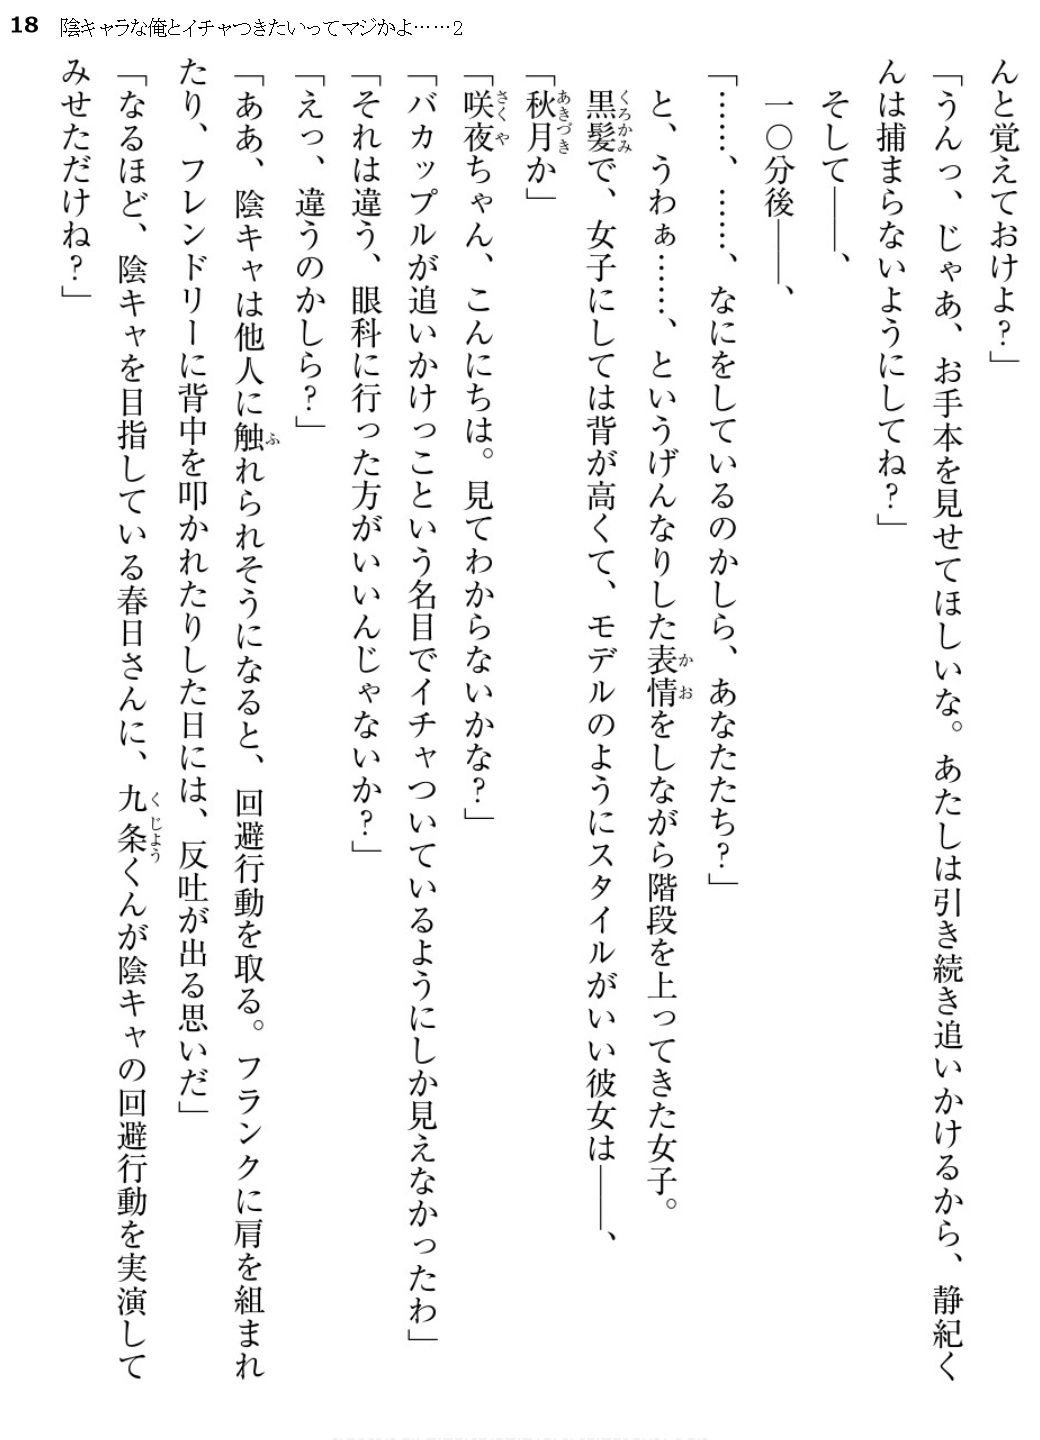 18 陰キャラな俺とイチャつきたいってマジかよ……2
んと覚えておけよ?」
「うんっ、じゃあ、お手本を見せてほしいな。あたしは引き続き追いかけるから、静紀く
んは捕まらないようにしてね?」
そして――、
一〇分後――、
「……、……、なにをしているのかしら、あなたたち?」
と、うわぁ……、というげんなりした表情をしながら階段を上ってきた女子。
黒髪で、女子にしては背が高くて、モデルのようにスタイルがいい彼女は――、
「秋月か」
「咲夜ちゃん、こんにちは。見てわからないかな?」
「バカップルが追いかけっこという名目でイチャついているようにしか見えなかったわ」
「それは違う、眼科に行った方がいいんじゃないか?」
「えっ、違うのかしら?」
「ああ、陰キャは他人に触れられそうになると、回避行動を取る。フランクに肩を組まれ
たり、フレンドリーに背中を叩かれたりした日には、反吐が出る思いだ」
「なるほど、陰キャを目指している春日さんに、九条くんが陰キャの回避行動を実演して
みせただけね?」